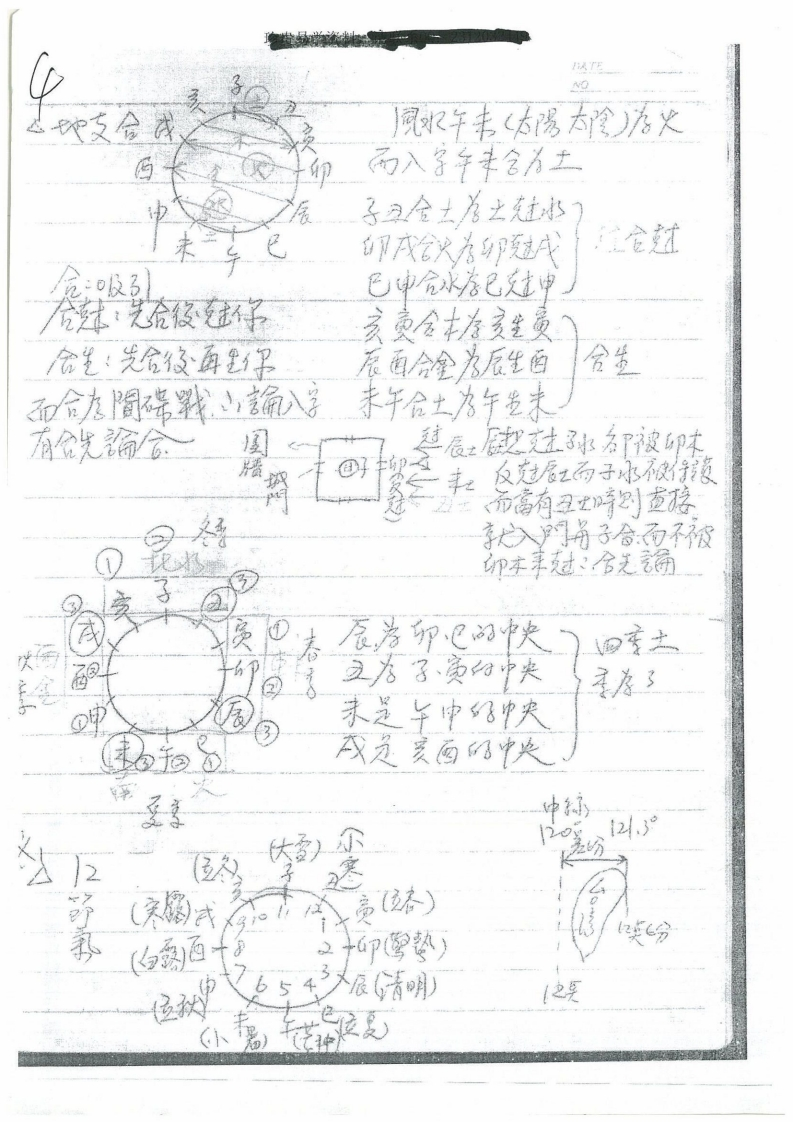 4
DATE
NO
△地支合
子 丑 寅 卯 辰 巳 午 未 申 酉 戌 亥
風水午未(太陽太陰)為火
而八字午未合為土
子丑合土為土尅水
卯戌合火為卯尅戌
巳申合水為巳尅申
合尅
合:吸引
合尅:先合後尅你
合生:先合後再生你
而合为間碟戰.以論八字
有合先論合
亥寅合木為亥生寅
辰酉合金為辰生酉
未午合土為午生未
合生
圍牆
城門
子
卯
尅 辰土
未土
丑土
辰想尅子水卻被卯木
反尅辰土而子水被保護
而當有丑土時則直接
入門與子合.而不被
卯木來尅:合先論
冬季
北水
① ② ③
亥 子 丑
寅 卯 辰
① ② ③
春季
巳 午 未
① ② ③
夏季
火
申 酉 戌
① ② ③
西金
辰為卯.巳的中央
丑為子.寅的中央
未是午申的中央
戌是亥酉的中央
四季土
12節氣
(立冬) 亥 10
(大雪) 子 11
小寒 丑 12
寅(立春) 1
卯(驚蟄) 2
辰(清明) 3
巳(立夏) 4
午(芒种) 5
未(小暑) 6
申(立秋) 7
(白露)酉 8
(寒露)戌 9
中線
120° 121.5°
差6分
台灣
12點6分
12點